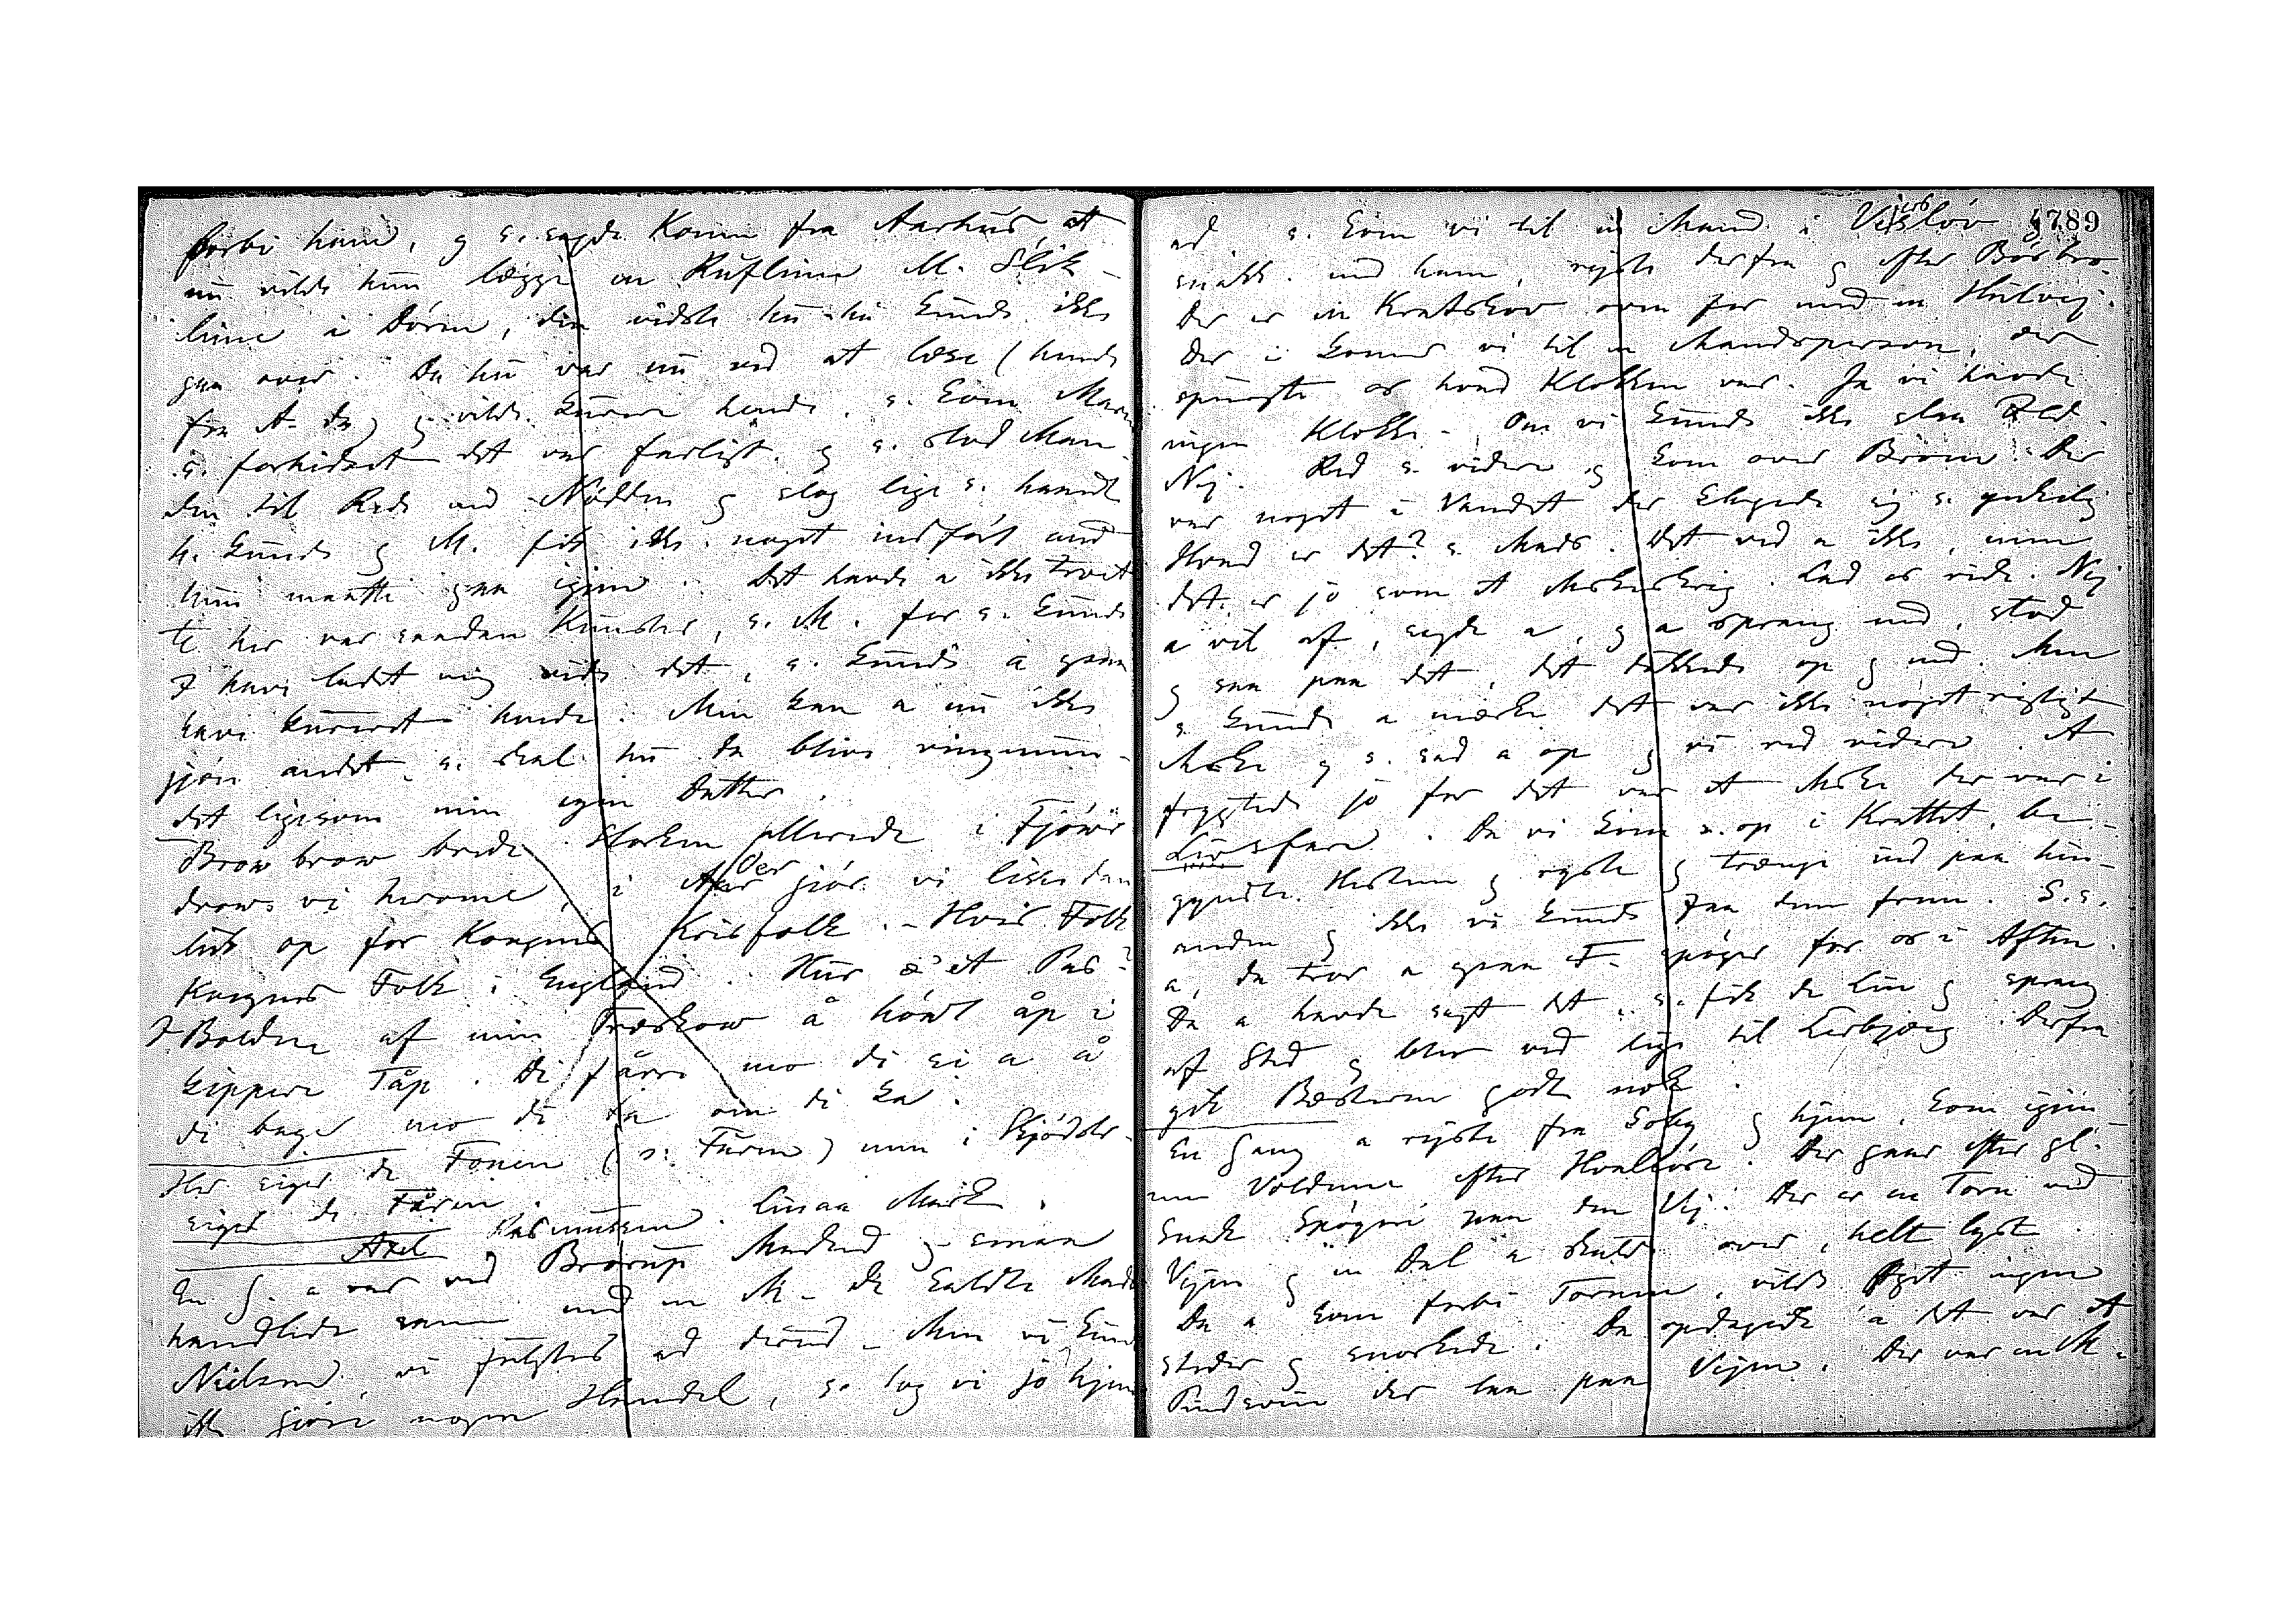 forbi ham, g s. sagde Konen fra Aarhus, at
nu vilde hun lægge en Ruflime M. Slik-
lime i Døren, den vidste hu hu kunde ikke
gaa over. Da hu var nu ved at læse (hendes
fra A. da) g vilde kurere hende. s. kom Maren
s. forhidset det var farligt. g s. stod Man-
den til Rede med Nødden g slog lige s. haardt
h. kunde g M. fik ikke noget indført and
hun maatte gaa igjen. Det havde a ikke troet
te her var saadan Kunster, s. M. for s. kunde
I have ladet mig vide det, s. kunde a gjærn
have kureret hende. Men kan a nu ikke
gjøre andet, s. skal hu da blive ringnim-
det ligesom min egen Datter.
Brow brow brede. Storken allerede i Fjöwr
drow vi hrome, i Aar der gjör vi lisse dan
luk op for Kongens Krisfolk. - Hvis Folk
Kongens Folk i England. Hur æ et Pas?
I Bolden af min Træskow å hówl åp i
kippere Tåp. Di fårre mo di ei a å
di bager mo di ta om di ka.
Her siger de Fonen (ɔ: Furen) men i Skjödstr-
siger de Fůren.
Axel Rasmussen. Linaa Mark.
En G. a var ved Brørup Marked g smaa
handlede sammen med en M - de kaldte Mads
Nielsen, vi fulgtes ad derud - Men vi kund
ikke gjøre nogen Handel, s. tog vi jo hjem
4789
ad s. kom vi til en Mand i Vejerslöv
snakk. med ham, rejste derfra g efter Bösbro.
Der er en Kratskov oven for med en Hulvej.
Der i kommer vi til en Mandsperson, der
spurgte os hvad Klokken var. Ja vi havde
ingen Klokke - Om vi kunde ikke slaa Ild.
Nej. Red s. videre g kom over Broen. Der
var noget i Vandet der klagede sig s. ynkelig
Hvad er det? s. Mads. Det ved a ikke, men
det er jo som et Mskeskrig. Lad os ride. Nej
a vil af, sagde a, g a sprang ned, stod
g saa paa det, det dukkede op g ned. Men
s. kunde a mærke det var ikke noget rigtigt
Mske g s. sad a op g vi red videre. A
frygtede jo for det var et Mske der var i
Livsfare. Da vi kom s. op i Krattet, be-
gyndte Hestene g ryste g trænge ind paa hin-
anden g ikke vi kunde faa dem frem. S. s.
a, da tror a gjærn F- spøger for os i Aften.
Da a havde sagt det, s. fik de Liv g sprang
af Sted g blev ved lige til Lerbjærg. Derfra
gik Bæsterne godt nok.
En Gang a rejste fra Søby g hjem, kom igjen-
nem Voldum efter Hvalløse. Der gaar efter gl.
Snak Spøgeri paa den Vej. Der er en Torn ved
Vejen g en Dal a skulde over, helt lyst.
Da a kom forbi Tornen, vilde Øget ingen
steder g snorkede. Da opdagede a det var et
Pindsvin der laa paa Vejen. Der var en M.